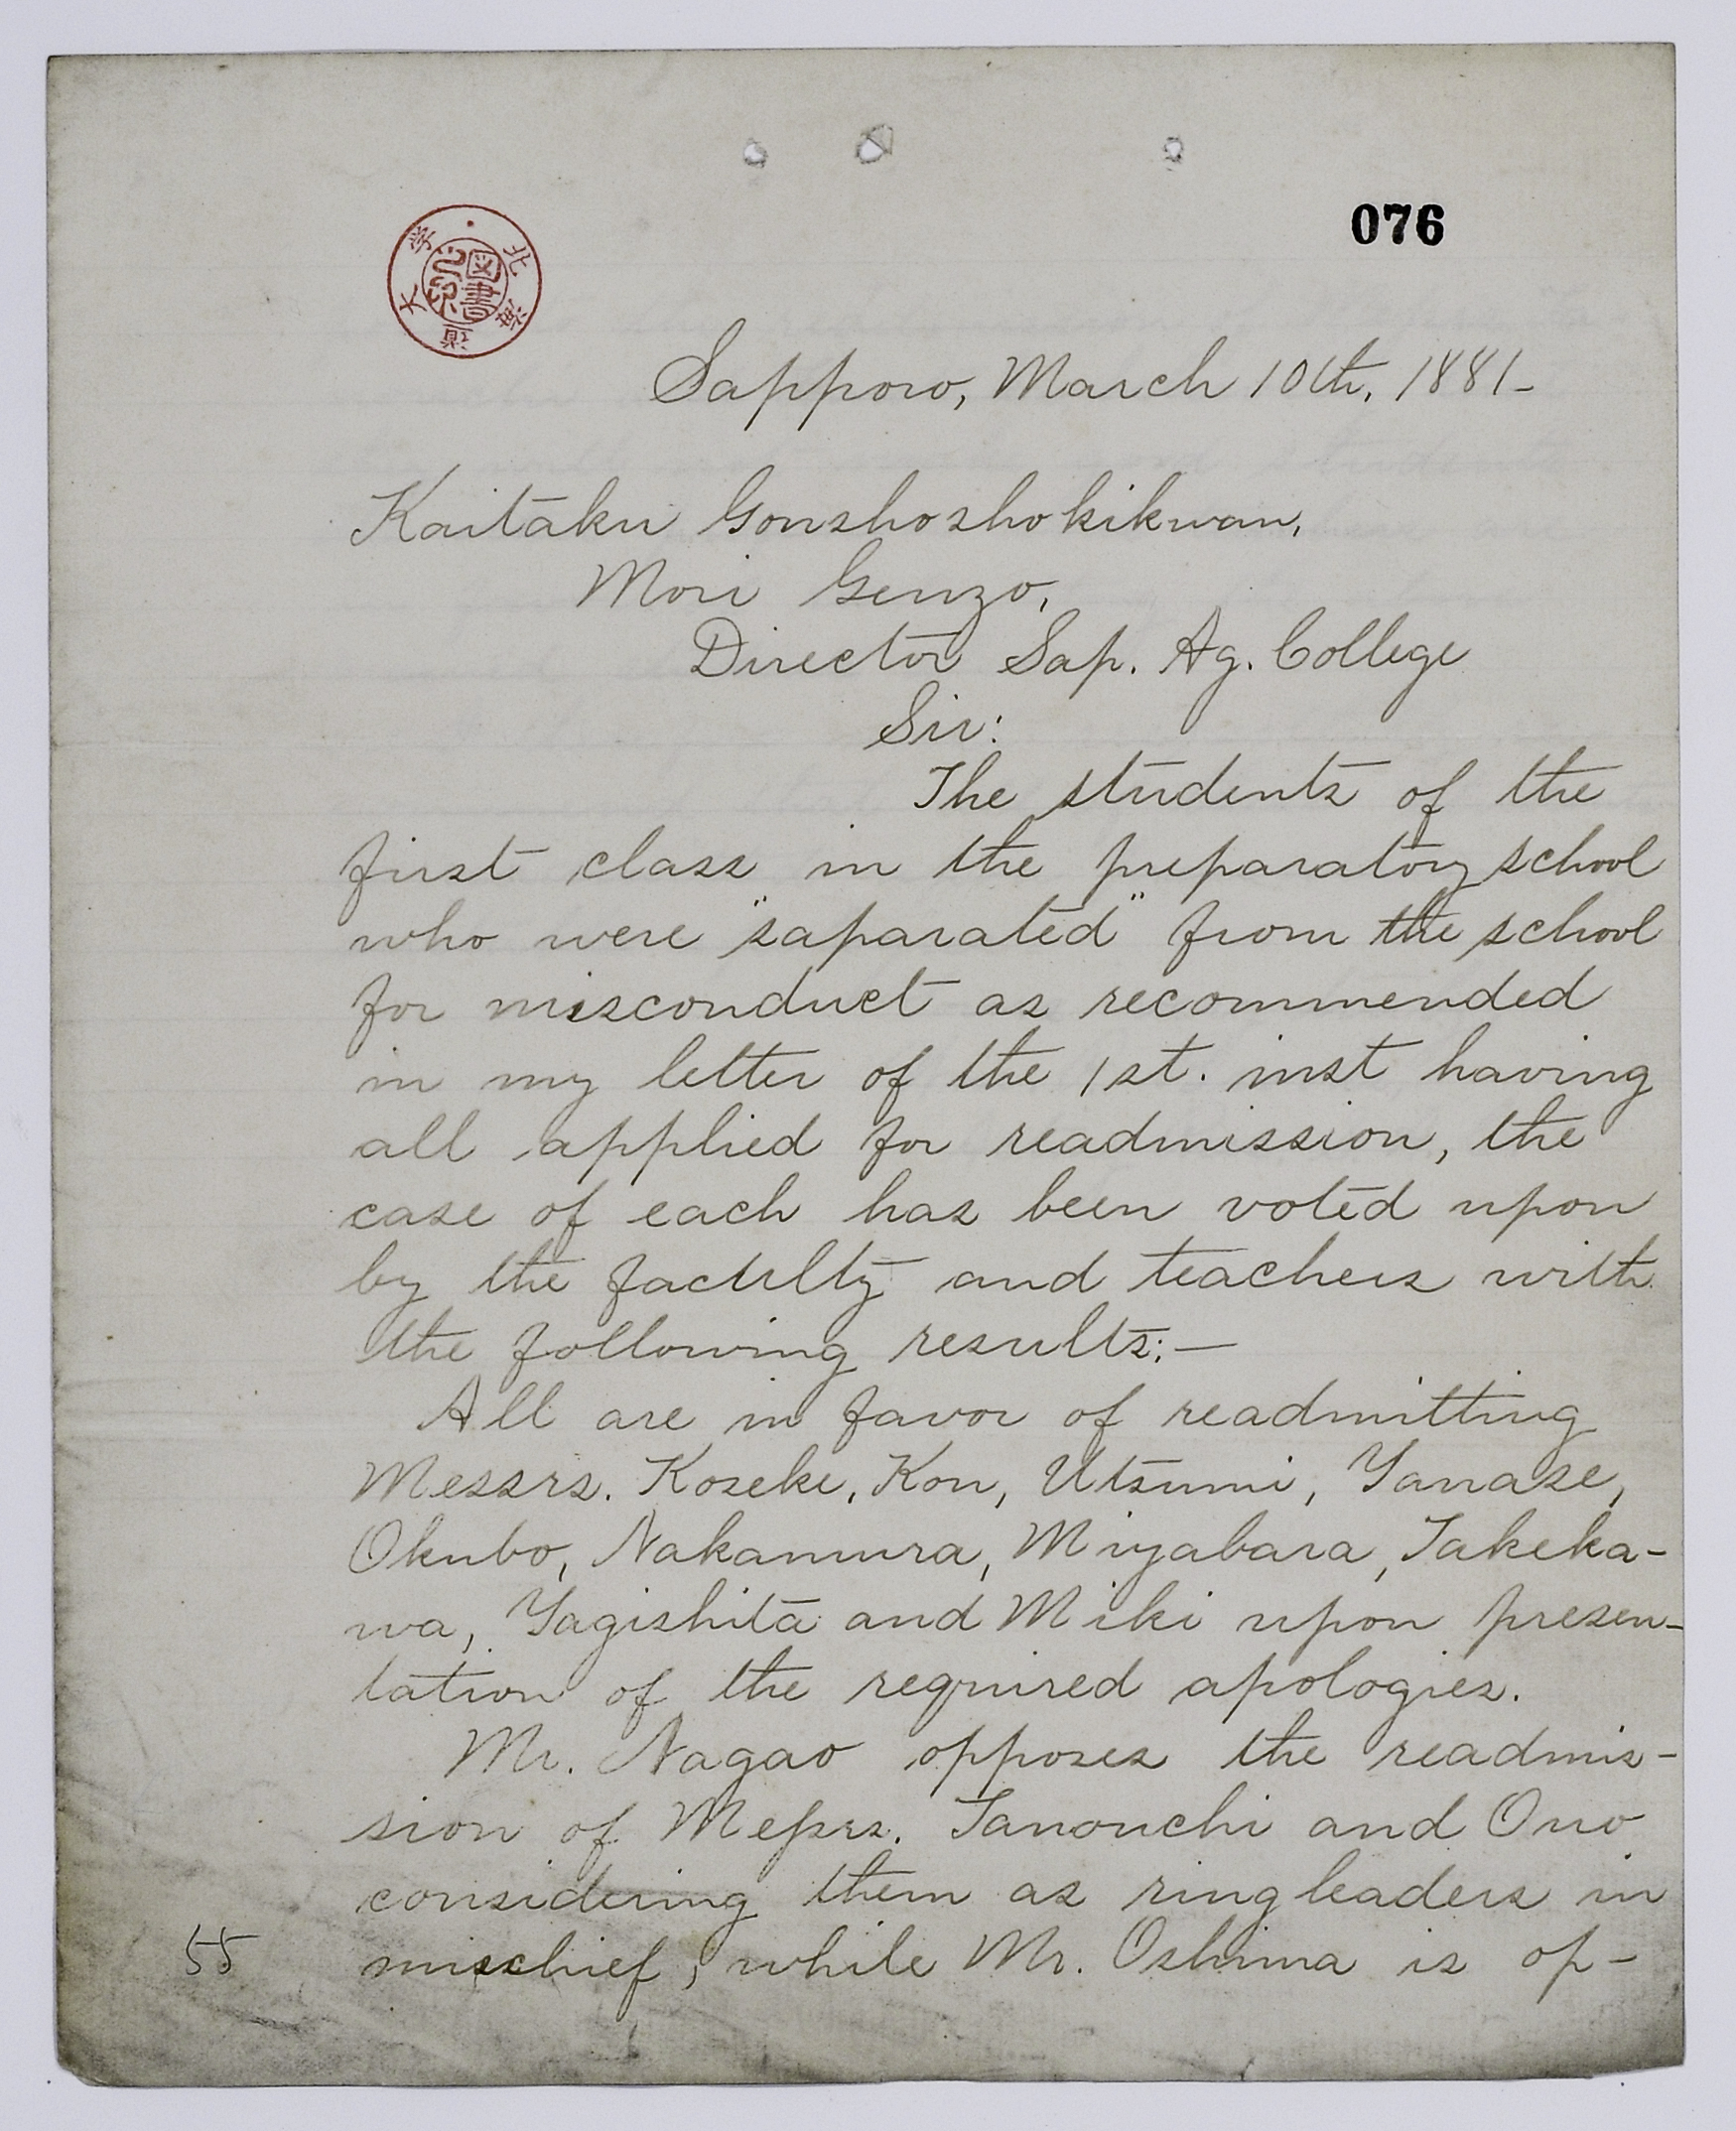 076
北海道大学
図書之印
Sapporo, March 10th, 1881-
Kaitaku Gonshoshokikwan,
Mori Genzo,
Director Sap. Ag. College
Sir:
The students of the
first class in the preparatory school
who were "saparated" from the school
for misconduct as recommended
in my letter of the 1st. inst having
all applied for readmission, the
case of each has been voted upon
by the faculty and teachers with
the following results:—
All are in favor of readmitting
Messrs. Koseke, Kon, Utsumi, Yanase,
Okubo, Nakamura, Miyabara, Takeka-
wa, Yagishita and Miki upon presen-
tation of the required apologies.
Mr. Nagao opposes the readmis-
sion of Messrs. Tanouchi and Ono
considering them as ringleaders in
mischief, while Mr. Oshima is op-
55